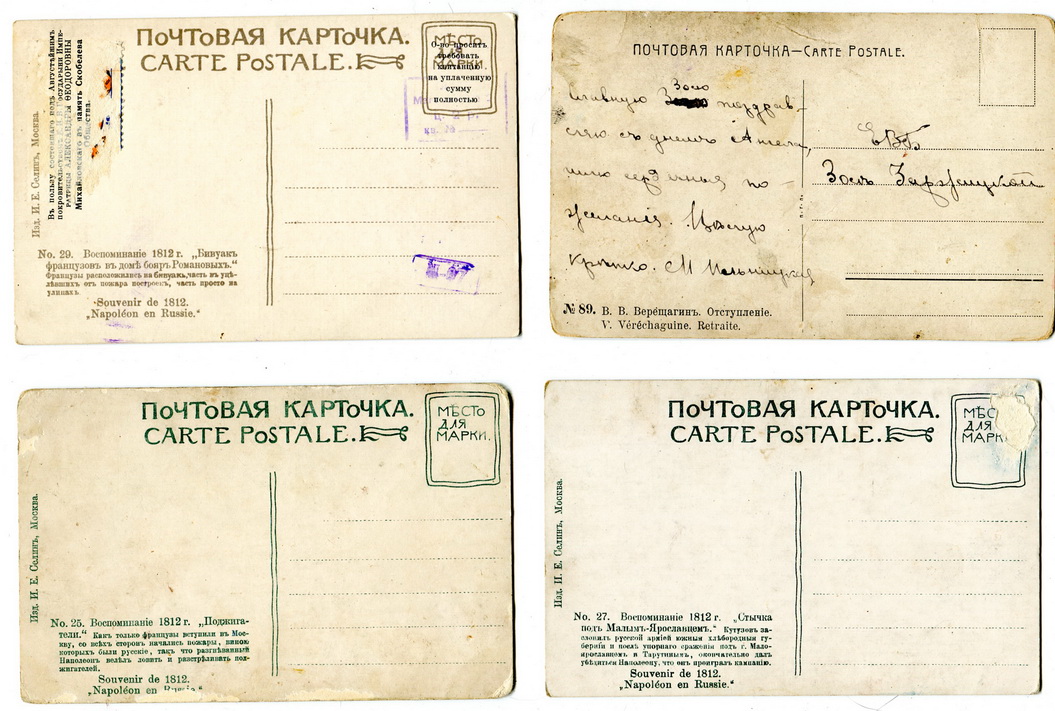 ПОЧТОВАЯ КАРТОЧКА.
CARTE POSTALE.
МѢСТО
ДЛЯ
МАРКИ.
на уплаченную
сумму
полностью
Въ пользу состоящаго подъ Августѣйшимъ
покровительствомъ Е. И. В. Государыни Импе-
ратрицы АЛЕКСАНДРЫ ѲЕОДОРОВНЫ
Михайловскаго въ память Скобелева
Общества.
Изд. И. Е. Селинъ, Москва.
No. 29. Воспоминаніе 1812 г. „Бивуакъ
французовъ въ домѣ бояръ Романовыхъ.“
Французы расположились на бивуакъ, часть въ уцѣ-
лѣвшихъ отъ пожара построекъ, часть просто на
улицахъ.
Souvenir de 1812.
„Napoléon en Russie.“
ПОЧТОВАЯ КАРТОЧКА—CARTE POSTALE.
Зою
Славную поздрав-
ляю съ днемъ Ангела,
шлю сердечныя по-
желанія. Цѣлую
крѣпко. М
ЕВБ
Зоѣ
№ 89. В. В. Верещагинъ. Отступленіе.
V. Véréchaguine. Retraite.
ПОЧТОВАЯ КАРТОЧКА.
CARTE POSTALE.
МѢСТО
ДЛЯ
МАРКИ.
Изд. И. Е. Селинъ, Москва.
No. 25. Воспоминаніе 1812 г. „Поджига-
тели.“ Какъ только французы вступили въ Мос-
кву, со всѣхъ сторонъ начались пожары, виною
которыхъ были русскіе, такъ что разгнѣванный
Наполеонъ велѣлъ ловить и разстрѣливать под-
жигателей.
Souvenir de 1812.
„Napoléon en Russie.“
ПОЧТОВАЯ КАРТОЧКА.
CARTE POSTALE.
МѢС
ДЛЯ
МАРК
Изд. И. Е. Селинъ, Москва.
No. 27. Воспоминаніе 1812 г. „Стычка
подъ Малымъ-Ярославцемъ.“ Кутузовъ за-
слонилъ русской арміей южныя хлѣбородныя гу-
берніи и послѣ упорнаго сраженія подъ г. Мало-
ярославцемъ и Тарутинымъ, окончательно далъ
убѣдиться Наполеону, что онъ проигралъ кампанію.
Souvenir de 1812.
„Napoléon en Russie.“